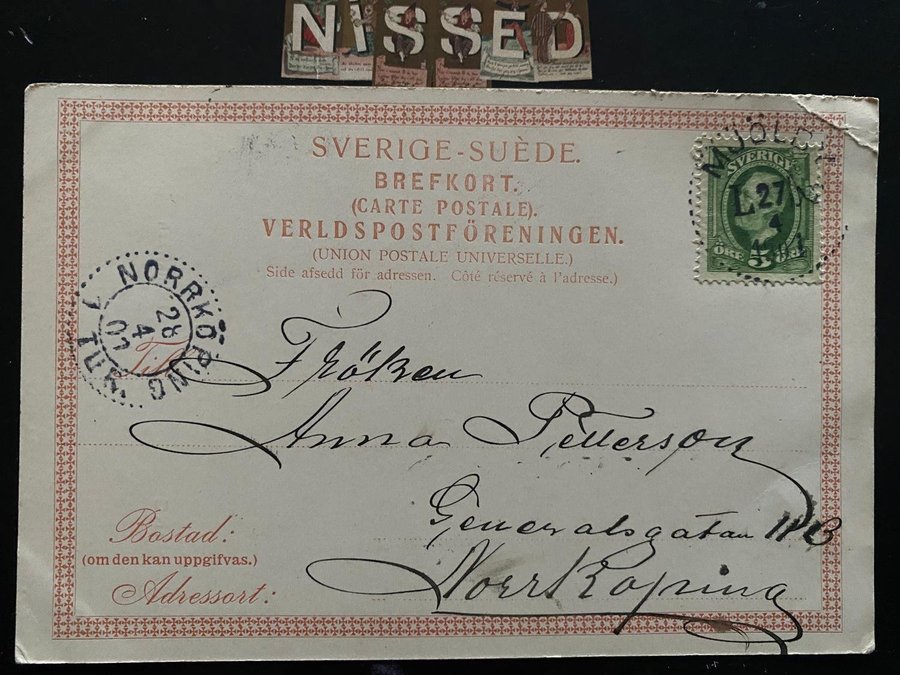 NISSED
SVERIGE-SUÈDE.
BREFKORT.
(CARTE POSTALE).
VERLDSPOSTFÖRENINGEN.
(UNION POSTALE UNIVERSELLE.)
Side afsedd för adressen. Côté réservé à l'adresse.)
MJÖLBY
SVERIGE
L 27
4
5
ÖRE
NORRKÖPING
28
4
01
TUR
Till
Fröken
Anna Petterson
Generalsgatan 11 B
Norrköping
Bostad:
(om den kan uppgifvas.)
Adressort: